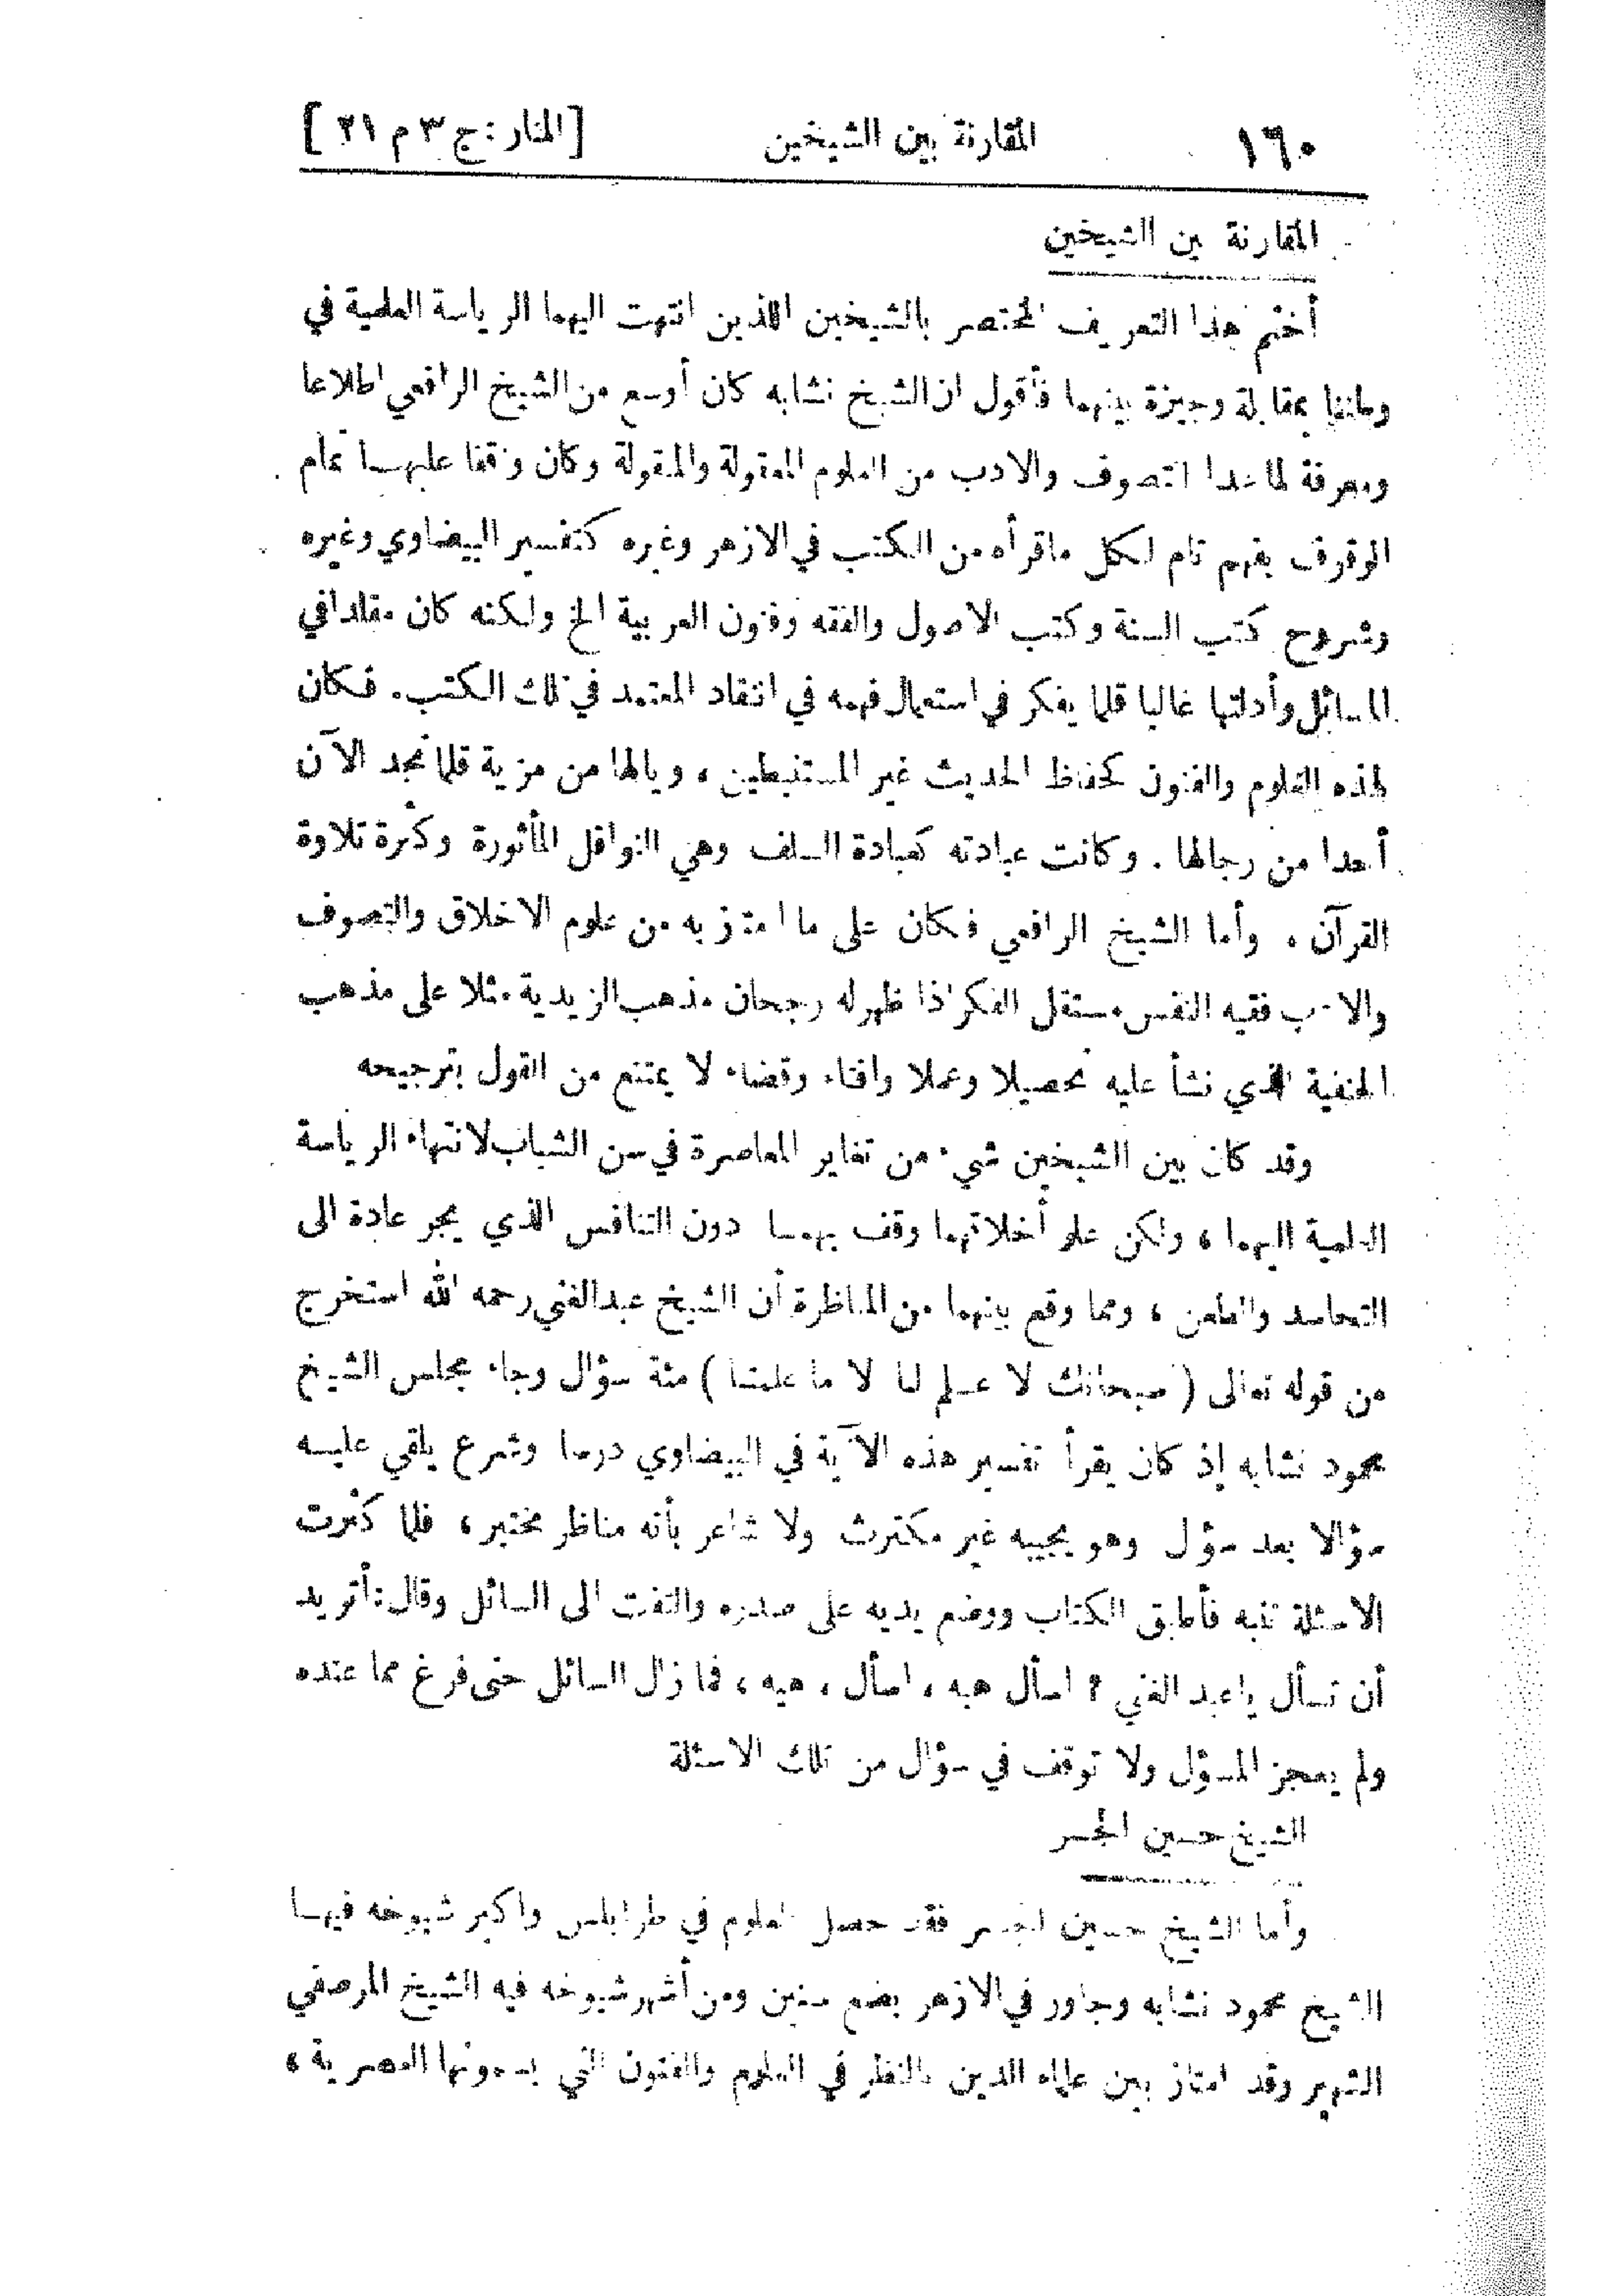 ١٦٠ المقارنة بين الشيخين [المنار: ج ٣ م ٢١]
المقارنة بين الشيخين
أختم هذا التعريف المختصر بالشيخين اللذين انتهت اليهما الرياسة العلمية في
وطننا بمقابلة وجيزة بينهما فأقول ان الشيخ نشابه كان أوسع من الشيخ الرافعي اطلاعا
ومعرفة لما عدا التصوف والادب من العلوم المعقولة والمنقولة وكان وقفا عليهما تمام
الوقوف بفهم تام لكل ماقرأه من الكتب في الازهر وغيره كتفسير البيضاوي وغيره
وشروح كتب السنة وكتب الاصول والفقه وفنون العربية الخ ولكنه كان مقلدا في
المسائل وأدلتها غالبا قلما يفكر في استعمال فهمه في انتقاد المعتمد في تلك الكتب. فكان
لهذه العلوم والفنون كحفاظ الحديث غير المستنبطين ، ويالها من مزية قلما نجد الآن
أحدا من رجالها . وكانت عبادته كعبادة السلف وهي النوافل المأثورة وكثرة تلاوة
القرآن . وأما الشيخ الرافعي فكان على ما امتز به من علوم الاخلاق والتصوف
والادب فقيه النفس مستقل الفكر اذا ظهر له رجحان مذهب الزيدية مثلا على مذهب
الحنفية الذي نشأ عليه تحصيلا وعملا وافتاء وقضاء لا يمتنع من القول بترجيحه
وقد كان بين الشيخين شيء من تغاير المعاصرة في سن الشباب لانتهاء الرياسة
العلمية اليهما ، ولكن علو أخلاقهما وقف بهما دون التنافس الذي يجر عادة الى
التحاسد والطعن ، ومما وقع بينهما من المناظرة أن الشيخ عبدالغني رحمه الله استخرج
من قوله تعالى ( سبحانك لا علم لنا لا ما علمتنا ) مئة سؤال وجاء مجلس الشيخ
محمود نشابه إذ كان يقرأ تفسير هذه الآية في البيضاوي درسا وشرع يلقي عليه
سؤالا بعد سؤل وهو يجيبه غير مكترث ولا شاعر بأنه مناظر مختبر ، فلما كثرت
الاسئلة تنبه فأطبق الكتاب ووضع يديه على صدره والتفت الى السائل وقال : أتريد
أن تسأل ياعبد الغني ؟ اسأل هيه ، اسأل ، هيه ، فما زال السائل حتى فرغ مما عنده
ولم يعجز المسؤل ولا توقف في سؤال من تلك الاسئلة
الشيخ حسين الجسر
وأما الشيخ حسين الجسر فقد حصل العلوم في طرابلس واكبر شيوخه فيها
الشيخ محمود نشابه وجاور في الازهر بضع سنين ومن أشهر شيوخه فيه الشيخ المرصفي
الشهير وقد امتاز بين علماء الدين بالنظر في العلوم والفنون التي يدعونها العصرية ،